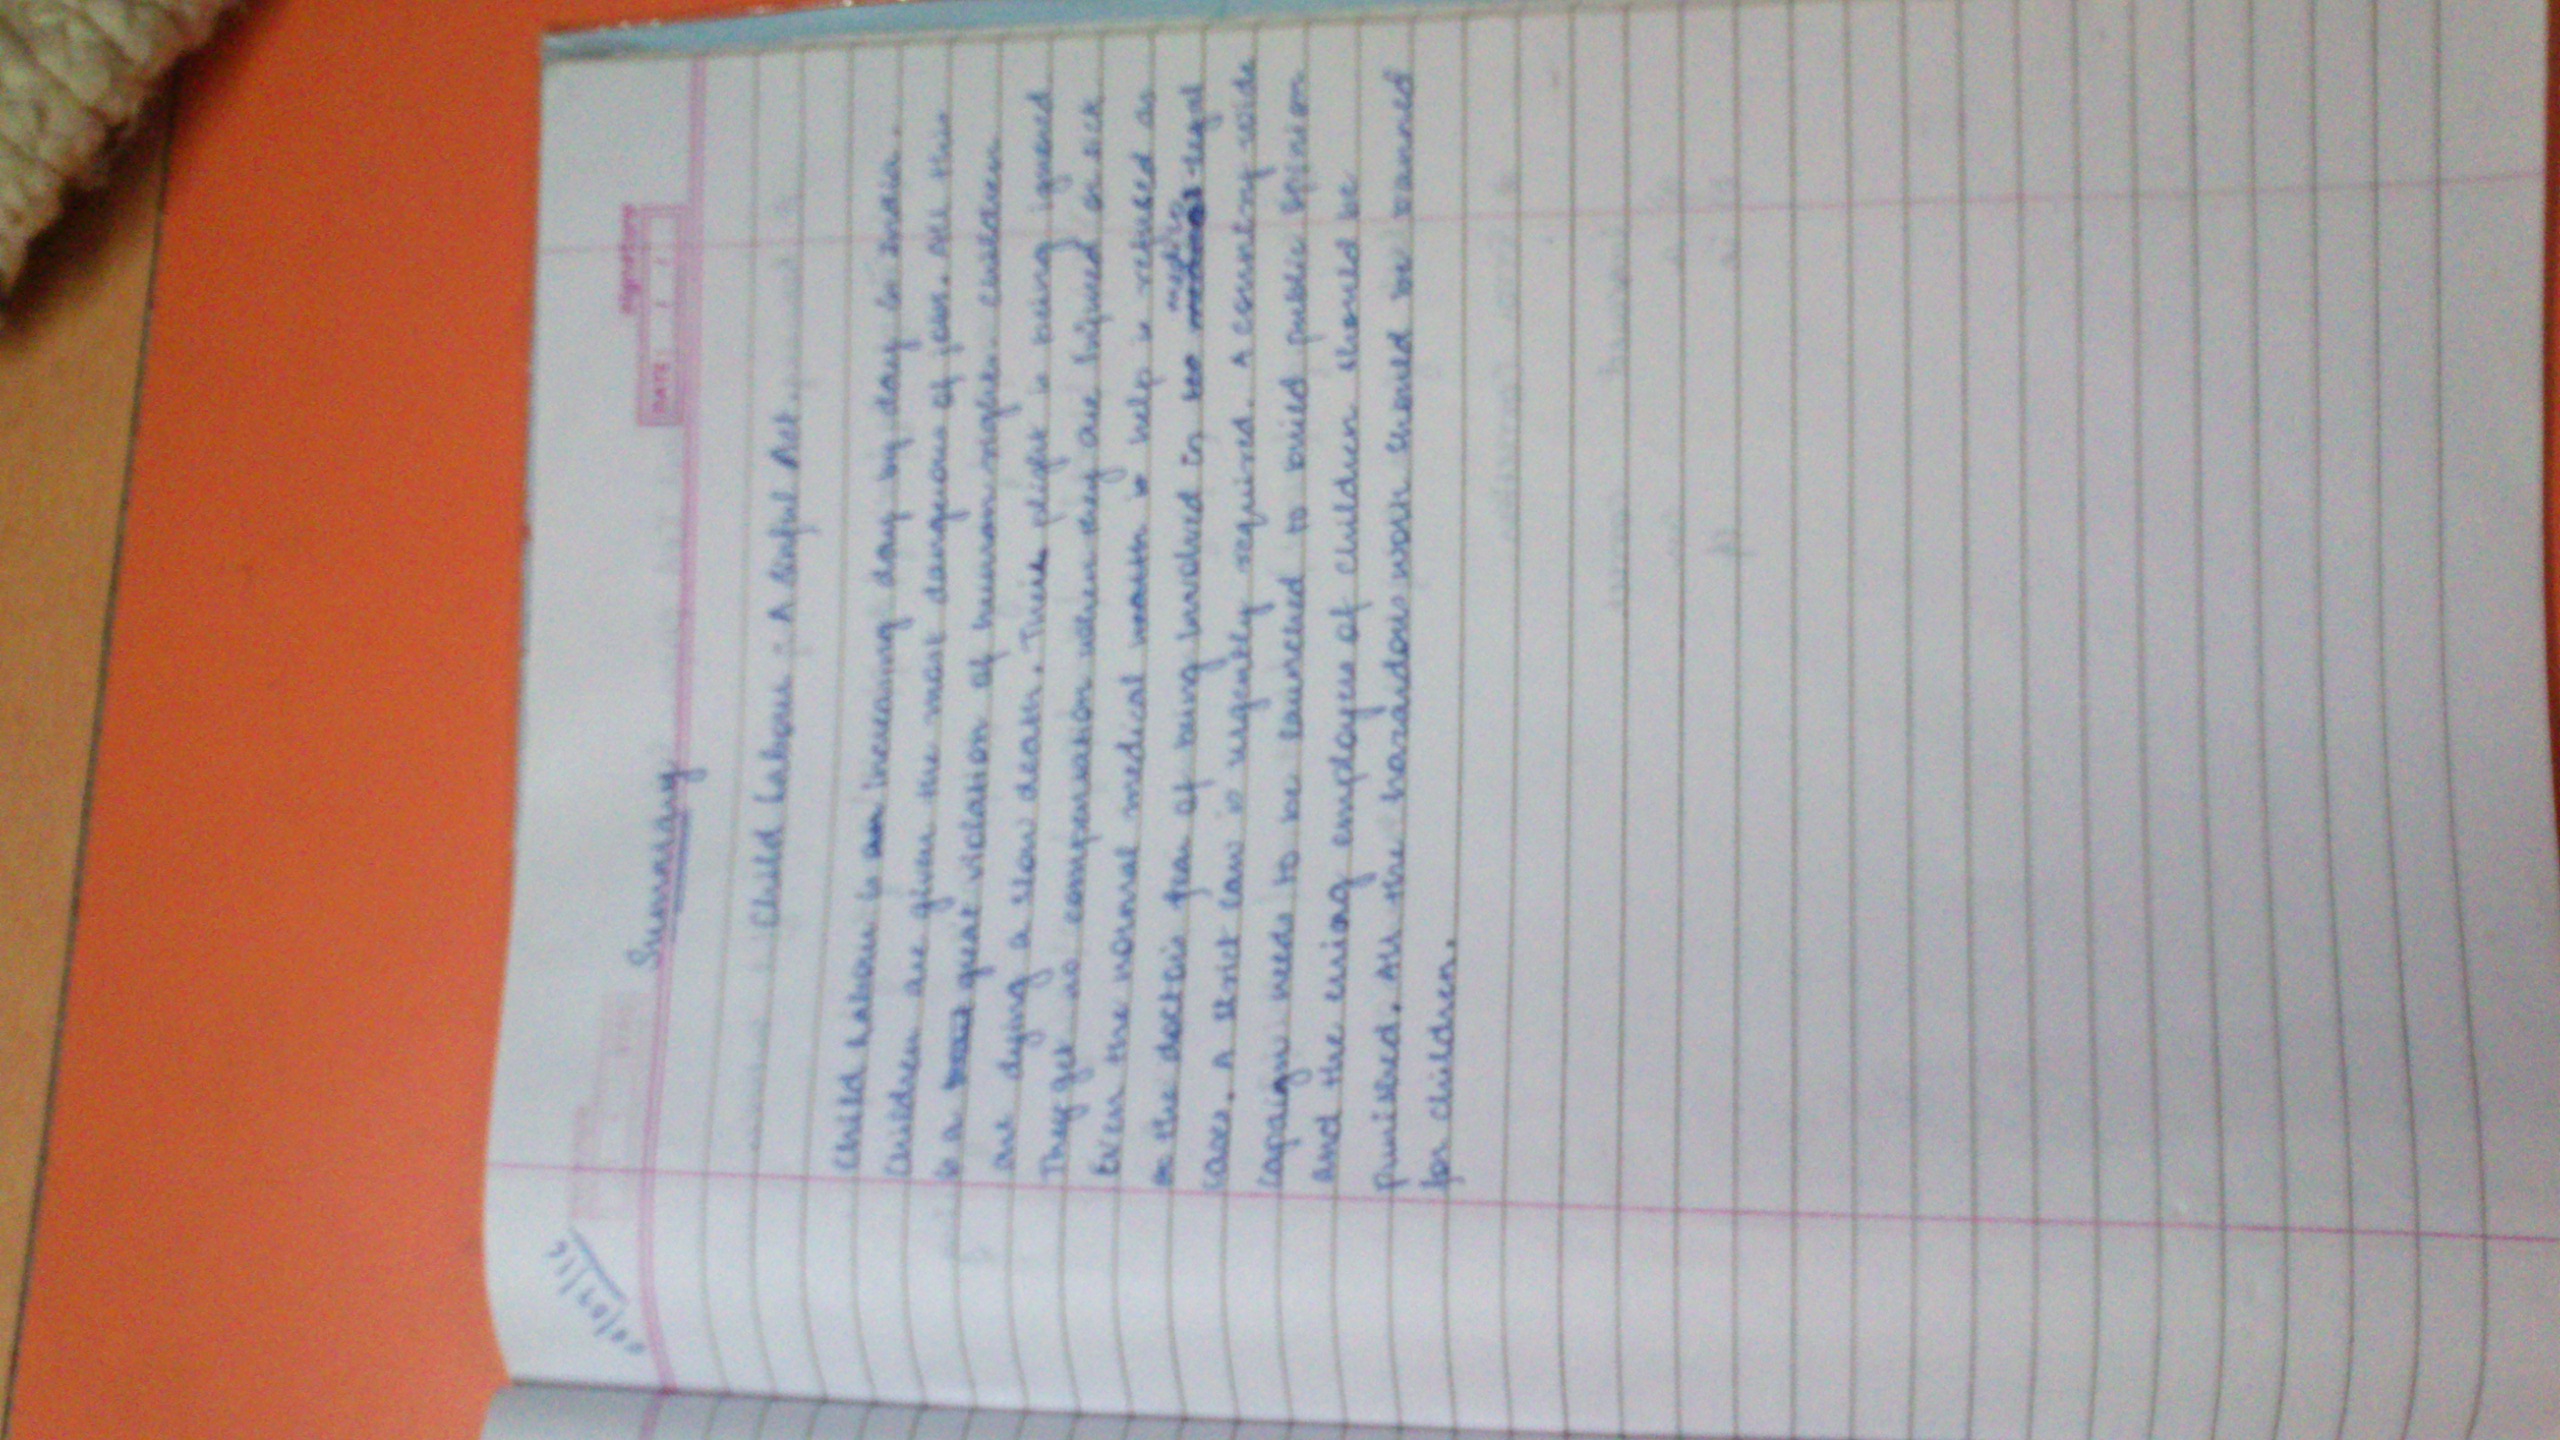 Summary
signature
DATE: / /
Child Labour - A Sinful Act.
Child Labour is increasing day by day in India.
Children are given the most dangerous of jobs. All this
is a great violation of human rights. Children
are dying a slow death. Their plight is being ignored
They get no compensation when they are injured or sick
Even the normal medical help is refused as
the doctors fear of being involved in medico legal
cases. A strict law is urgently required. A country wide
capaign needs to be launched to build public opinion
and the erring employers of children should be
punished. All the hazardous work should be banned
for children.